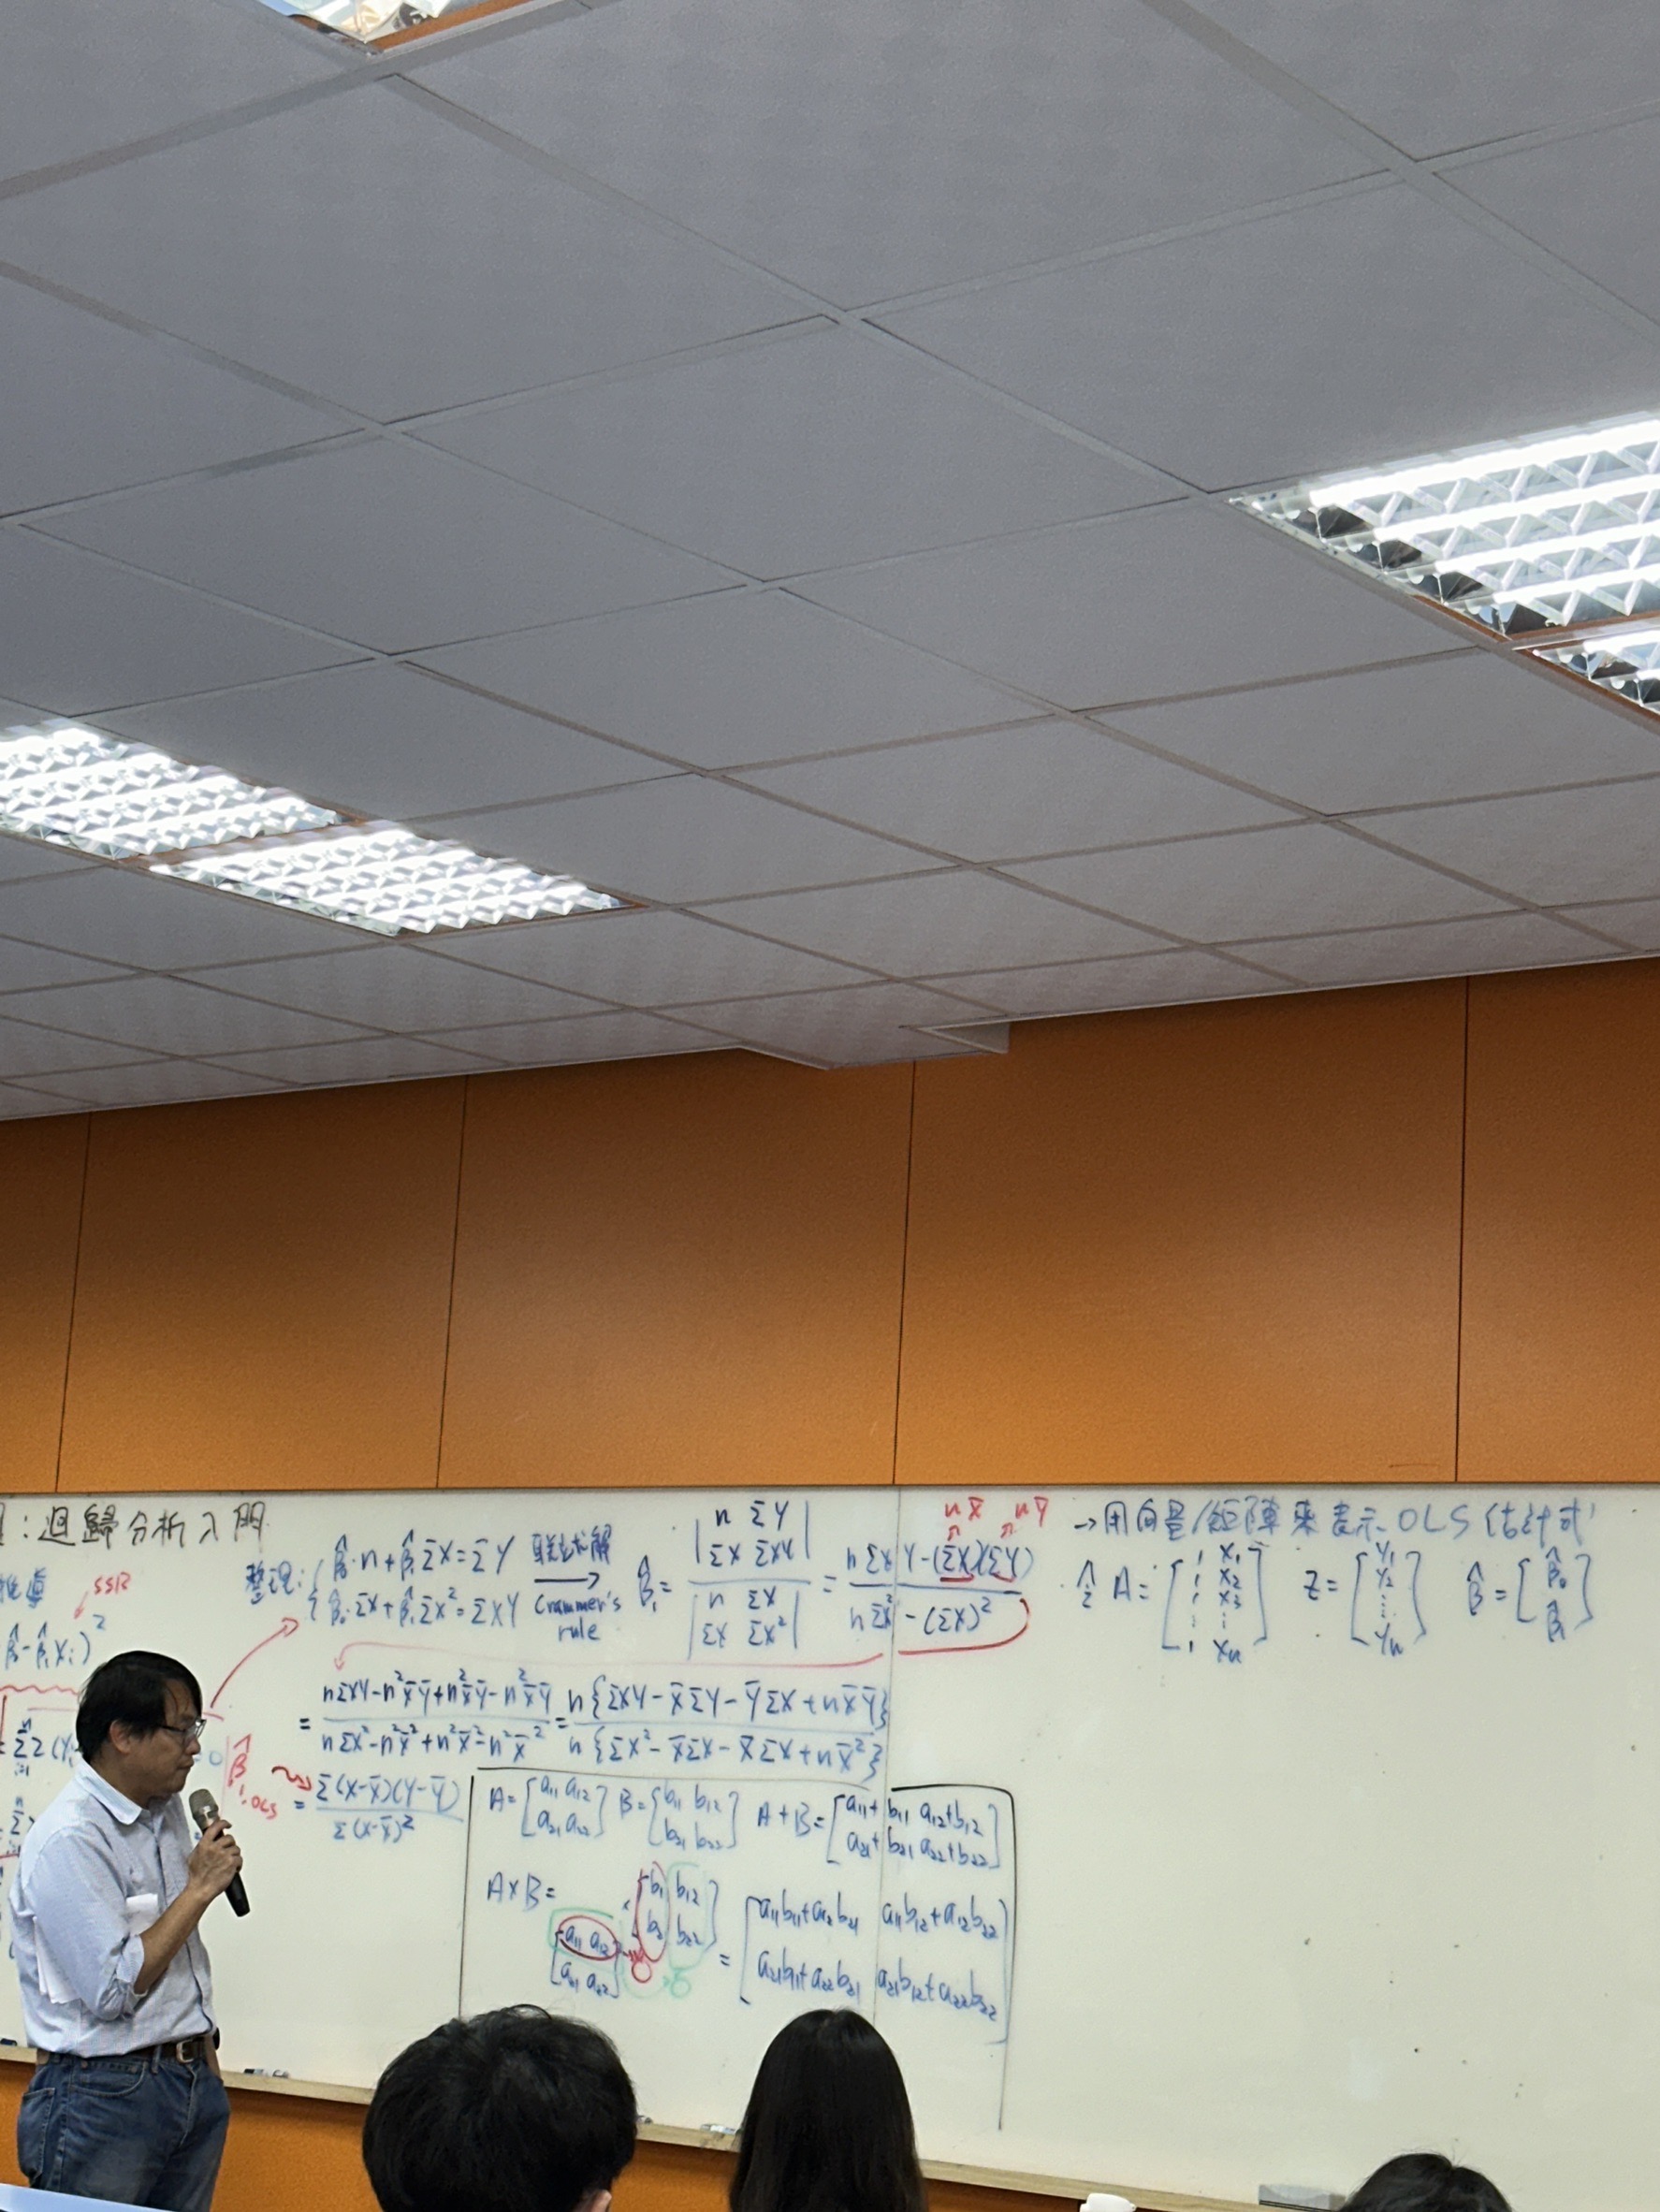 : 迴歸分析入門
推導
SSR
β̂₀-β̂₁Xᵢ)²
整理: { β̂₀·n+β̂₁ΣX=ΣY
β̂₀·ΣX+β̂₁ΣX²=ΣXY
聯立求解
→
Crammer's
rule
β̂₁= |n ΣY
ΣX ΣXY| / |n ΣX
ΣX ΣX²| = nΣXY-(ΣX)(ΣY) / nΣX²-(ΣX)²
nX̄ nȲ
= nΣXY-n²X̄Ȳ+n²X̄Ȳ-n²X̄Ȳ / nΣX²-n²X̄²+n²X̄²-n²X̄² = n{ΣXY-X̄ΣY-ȲΣX+nX̄Ȳ} / n{ΣX²-X̄ΣX-X̄ΣX+nX̄²}
β̂₁,OLS
= Σ(X-X̄)(Y-Ȳ) / Σ(X-X̄)²
A=[a₁₁ a₁₂
a₂₁ a₂₂] B=[b₁₁ b₁₂
b₂₁ b₂₂] A+B=[a₁₁+b₁₁ a₁₂+b₁₂
a₂₁+b₂₁ a₂₂+b₂₂]
A×B=
[a₁₁ a₁₂
a₂₁ a₂₂]
[b₁ b₁₂
b₂ b₂₂]
= [a₁₁b₁₁+a₁₂b₂₁ a₁₁b₁₂+a₁₂b₂₂
a₂₁b₁₁+a₂₂b₂₁ a₂₁b₁₂+a₂₂b₂₂]
→用向量/矩陣來表示OLS估計式
令 A=[1 X₁
1 X₂
1 X₃
⋮ ⋮
1 Xₙ] Z=[Y₁
Y₂
⋮
Yₙ] β̂=[β̂₀
β̂₁]